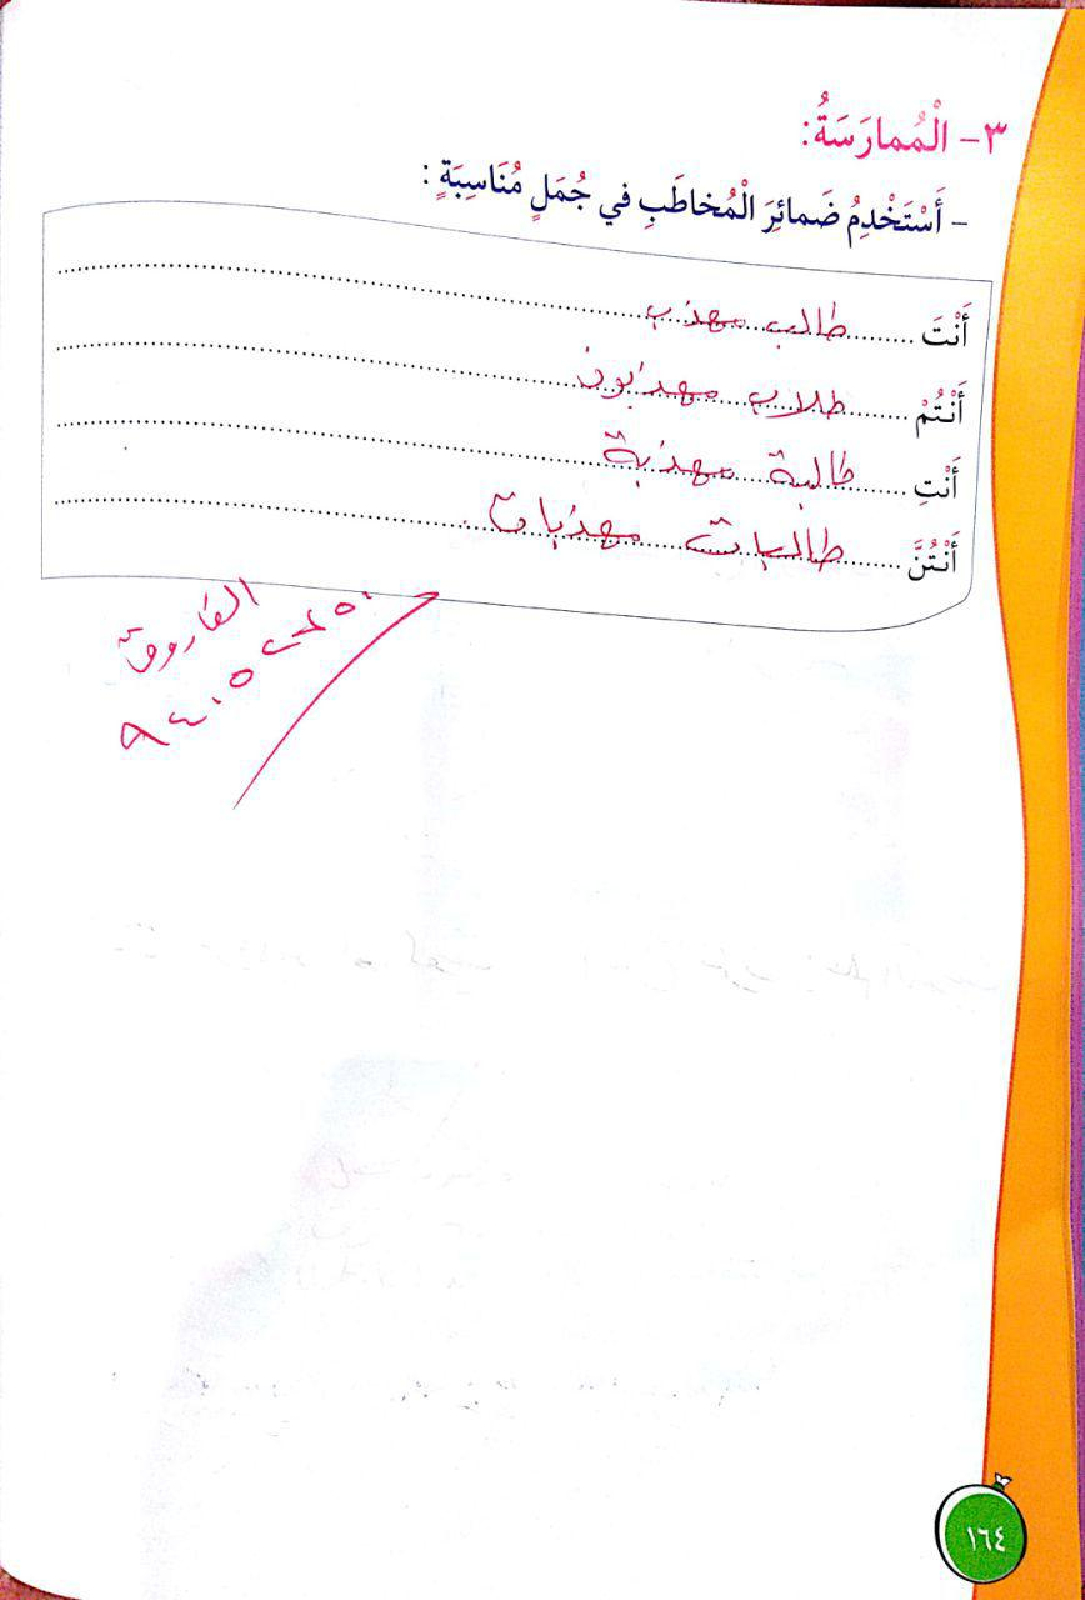 ٣- الْمُمارَسَةُ:
- أَسْتَخْدِمُ ضَمائِرَ الْمُخاطَبِ في جُمَلٍ مُنَاسِبَةٍ :
أَنْتَ طالب مهذب
أَنْتُمْ طلاب مهذبون
أَنْتِ طالبة مهذبة
أَنْتُنَّ طالبات مهذبات
الفاروق
١٦٤